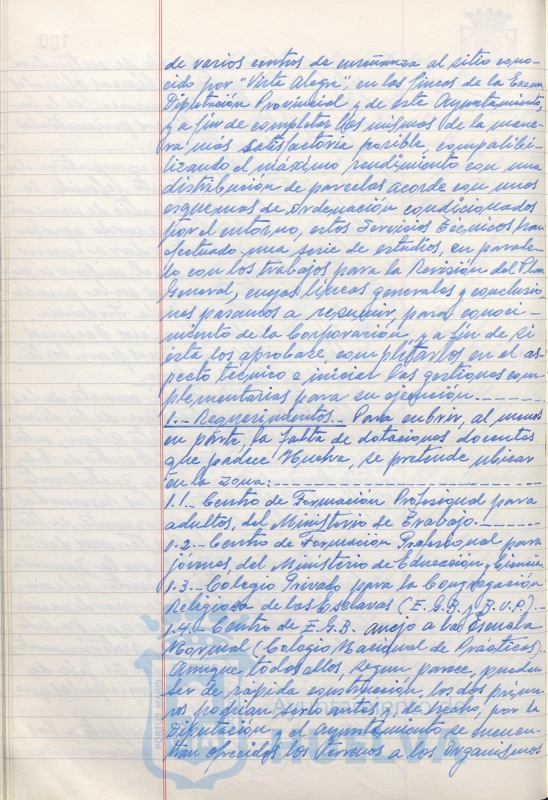 de varios centros de enseñanza al sitio cono-
cido por "Vista Alegre", en las fincas de la Excma.
Diputación Provincial y de este Ayuntamiento,
y a fin de completar los mismos de la mane-
ra más satisfactoria posible, compatibi-
lizando el máximo rendimiento con una
distribución de parcelas acorde con unos
esquemas de ordenación condicionados
por el entorno, estos Servicios Técnicos han
efectuado una serie de estudios, en parale-
lo con los trabajos para la Revisión del Plan
General, cuyas líneas generales y conclusio-
nes pasamos a resumir, para conoci-
miento de la Corporación, y a fin de si
ésta los aprobase, completarlos en el as-
pecto técnico e iniciar las gestiones com-
plementarias para su ejecución.
1.- Requerimientos.- Para cubrir, al menos
en parte, la falta de dotaciones docentes
que padece Huelva, se pretende ubicar
en la zona:
1.1.- Centro de Formación Profesional para
adultos, del Ministerio de Trabajo.
1.2.- Centro de Formación Profesional para
jóvenes, del Ministerio de Educación y Ciencia.
1.3.- Colegio Privado para la Congregación
Religiosa de las Esclavas (E.G.B. y B.U.P.).-
1.4.- Centro de E.G.B. anejo a la Escuela
Normal (Colegio Nacional de Prácticas).
Aunque todos ellos, según parece, pueden
ser de rápida construcción, los dos prime-
ros podrían serlo antes y de hecho, por la
Diputación y el Ayuntamiento se encuen-
tran ofrecidos los terrenos a los Organismos